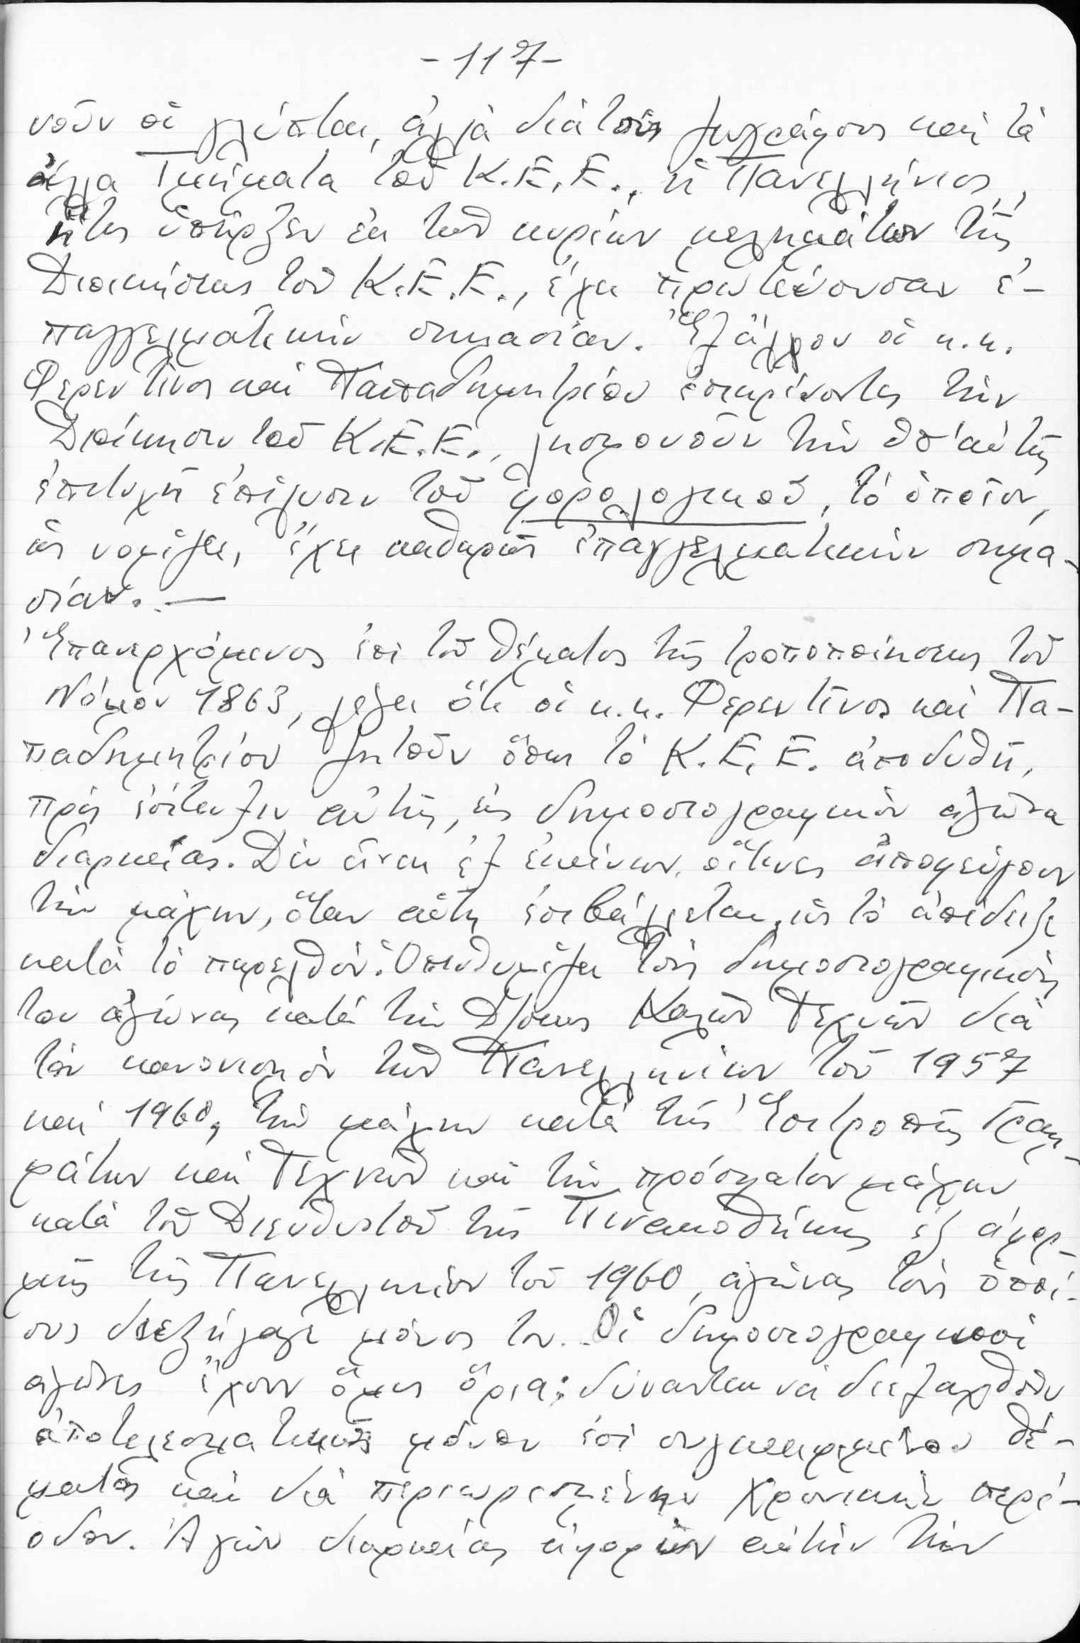 -117-
νοῦν οἱ γλύπται, ἀλλὰ διὰ τοὺς ζωγράφους καὶ τὰ
ἄλλα Τμήματα τοῦ Κ.Ε.Ε., ἡ Πανελλήνιος,
ἥτις ὑπῆρξεν ἐκ τῶν κυρίων μελημάτων τῆς
Διοικήσεως τοῦ Κ.Ε.Ε., ἔχει πρωτεύουσαν ἐ-
παγγελματικὴν σημασίαν. Ἐξ ἄλλου οἱ κ.κ.
Φερεντῖνος καὶ Παπαδημητρίου ἐπικρίνοντες τὴν
Διοίκησιν τοῦ Κ.Ε.Ε., λησμονοῦν τὴν ὑπ' αὐτῆς
ἐπιτυχῆ ἐπίλυσιν τοῦ φορολογικοῦ, τὸ ὁποῖον,
ὡς νομίζει, ἔχει καθαρῶς ἐπαγγελματικὴν σημα-
σίαν. —
Ἐπανερχόμενος ἐπὶ τοῦ θέματος τῆς τροποποιήσεως τοῦ
Νόμου 1863, λέγει ὅτι οἱ κ.κ. Φερεντῖνος καὶ Πα-
παδημητρίου ζητοῦν ὅπως τὸ Κ.Ε.Ε. ἀποδυθῇ,
πρὸς ἐπίτευξιν αὐτῆς, εἰς δημοσιογραφικὸν ἀγῶνα
διαρκείας. Δὲν εἶναι ἐξ ἐκείνων, οἵτινες ἀποφεύγουν
τὴν μάχην, ὅταν αὕτη ἐπιβάλλεται, ὡς τὸ ἀπέδειξε
κατὰ τὸ παρελθόν. Ὑπενθυμίζει τοὺς δημοσιογραφικούς
του ἀγῶνας κατὰ τῆς Δ/σεως Καλῶν Τεχνῶν διὰ
τὸν κανονισμὸν τῶν Πανελληνίων τοῦ 1957
καὶ 1960, τὴν μάχην κατὰ τῆς Ἐπιτροπῆς Γραμ-
μάτων καὶ Τεχνῶν καὶ τὴν πρόσφατον μάχην
κατὰ τοῦ Διευθυντοῦ τῆς Πινακοθήκης ἐξ ἀφορ-
μῆς τῆς Πανελληνίου τοῦ 1960, ἀγῶνας τοὺς ὁποί-
ους διεξήγαγε μόνος του. Οἱ δημοσιογραφικοὶ
ἀγῶνες ἔχουν ὅμως ὅρια· δύνανται νὰ διεξαχθοῦν
ἀποτελεσματικῶς μόνον ἐπὶ συγκεκριμένου θέ-
ματος καὶ διὰ περιωρισμένην χρονικὴν περί-
οδον. Ἀγὼν διαρκείας ἀφορῶν αὐτὴν τὴν